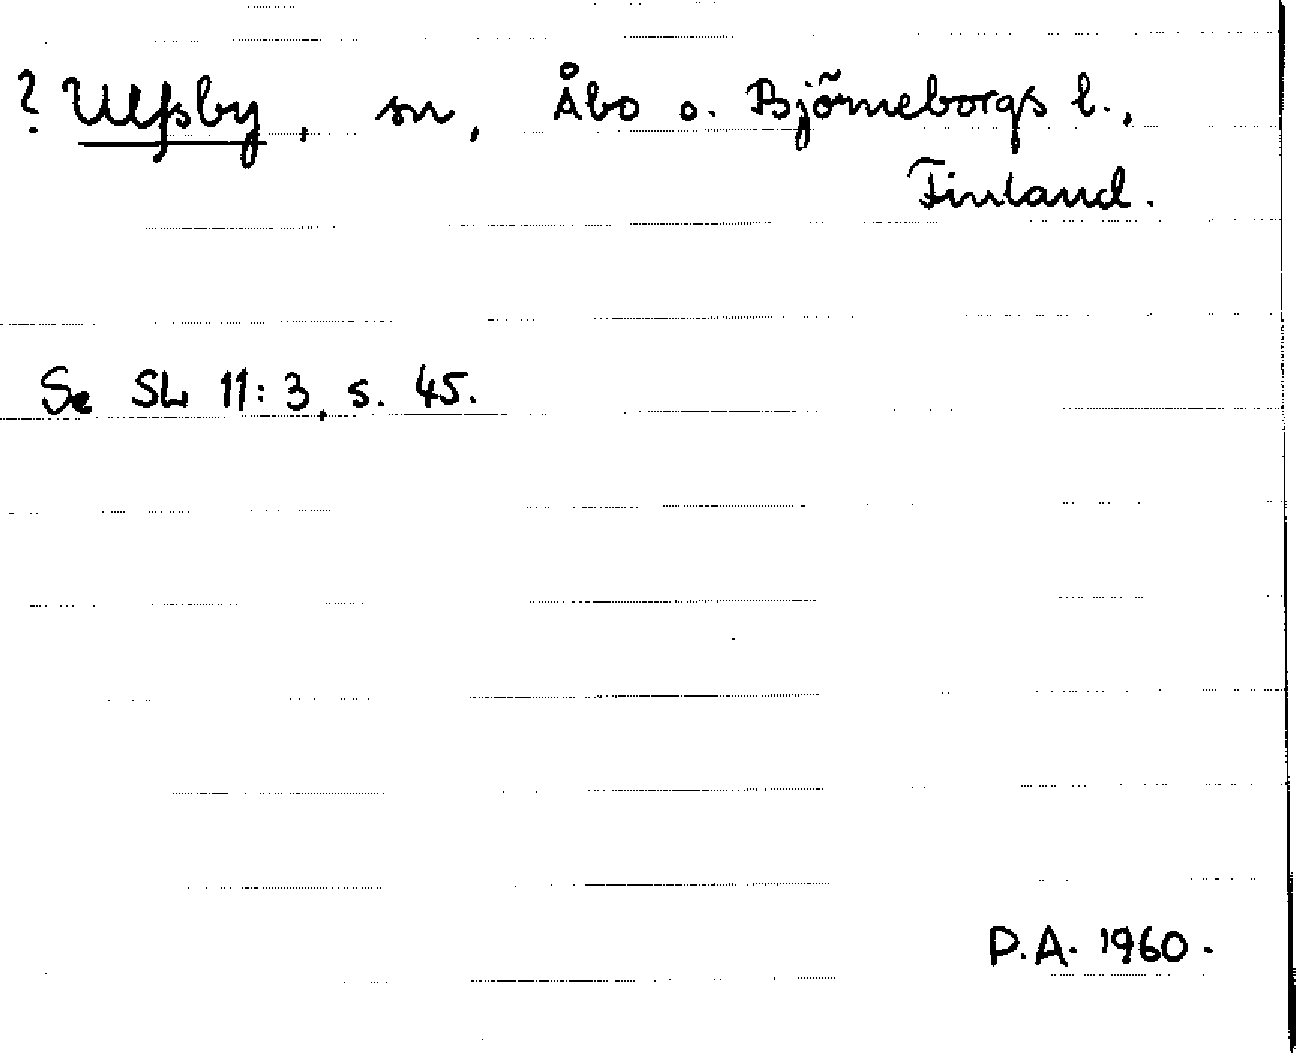 ? Ulfsby, sn, Åbo o. Björneborgs l.,
Finland.
Se SL 11:3, s. 45.
P.A. 1960.